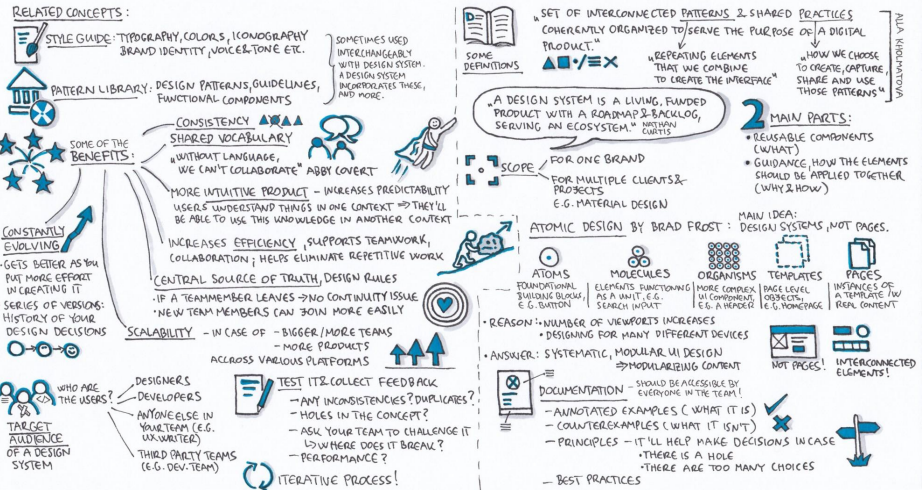 RELATED CONCEPTS:
STYLE GUIDE: TYPOGRAPHY, COLORS, ICONOGRAPHY
BRAND IDENTITY, VOICE & TONE ETC.
PATTERN LIBRARY: DESIGN PATTERNS, GUIDELINES,
FUNCTIONAL COMPONENTS
SOMETIMES USED
INTERCHANGEABLY
WITH DESIGN SYSTEM.
A DESIGN SYSTEM
INCORPORATES THESE,
AND MORE.
SOME OF THE
BENEFITS:
CONSISTENCY
SHARED VOCABULARY
"WITHOUT LANGUAGE,
WE CAN'T COLLABORATE" ABBY COVERT
MORE INTUITIVE PRODUCT - INCREASES PREDICTABILITY
USERS UNDERSTAND THINGS IN ONE CONTEXT ⇒ THEY'LL
BE ABLE TO USE THIS KNOWLEDGE IN ANOTHER CONTEXT
INCREASES EFFICIENCY, SUPPORTS TEAMWORK,
COLLABORATION; HELPS ELIMINATE REPETITIVE WORK
CENTRAL SOURCE OF TRUTH, DESIGN RULES
• IF A TEAMMEMBER LEAVES → NO CONTINUITY ISSUE
• NEW TEAM MEMBERS CAN JOIN MORE EASILY
SCALABILITY - IN CASE OF - BIGGER/MORE TEAMS
- MORE PRODUCTS
ACCROSS VARIOUS PLATFORMS
CONSTANTLY
EVOLVING
• GETS BETTER AS YOU
PUT MORE EFFORT
IN CREATING IT
SERIES OF VERSIONS:
HISTORY OF YOUR
DESIGN DECISIONS
WHO ARE
THE USERS?
TARGET
AUDIENCE
OF A DESIGN
SYSTEM
DESIGNERS
DEVELOPERS
ANYONE ELSE IN
YOUR TEAM (E.G.
UX WRITER)
THIRD PARTY TEAMS
(E.G. DEV. TEAM)
TEST IT & COLLECT FEEDBACK
- ANY INCONSISTENCIES? DUPLICATES?
- HOLES IN THE CONCEPT?
- ASK YOUR TEAM TO CHALLENGE IT
↳ WHERE DOES IT BREAK?
- PERFORMANCE?
ITERATIVE PROCESS!
D
SOME
DEFINITIONS
"SET OF INTERCONNECTED PATTERNS & SHARED PRACTICES
COHERENTLY ORGANIZED TO SERVE THE PURPOSE OF A DIGITAL
PRODUCT."
"REPEATING ELEMENTS
THAT WE COMBINE
TO CREATE THE INTERFACE"
"HOW WE CHOOSE
TO CREATE, CAPTURE,
SHARE AND USE
THOSE PATTERNS"
ALLA KHOLMATOVA
"A DESIGN SYSTEM IS A LIVING, FUNDED
PRODUCT WITH A ROADMAP & BACKLOG,
SERVING AN ECOSYSTEM." NATHAN
CURTIS
2 MAIN PARTS:
• REUSABLE COMPONENTS
(WHAT)
• GUIDANCE, HOW THE ELEMENTS
SHOULD BE APPLIED TOGETHER
(WHY & HOW)
SCOPE
FOR ONE BRAND
FOR MULTIPLE CLIENTS &
PROJECTS
E.G. MATERIAL DESIGN
ATOMIC DESIGN BY BRAD FROST:
MAIN IDEA:
DESIGN SYSTEMS, NOT PAGES.
ATOMS
FOUNDATIONAL
BUILDING BLOCKS,
E.G. BUTTON
MOLECULES
ELEMENTS FUNCTIONING
AS A UNIT, E.G.
SEARCH INPUT
ORGANISMS
MORE COMPLEX
UI COMPONENT,
E.G. A HEADER
TEMPLATES
PAGE LEVEL
OBJECTS,
E.G. HOMEPAGE
PAGES
INSTANCES OF
A TEMPLATE /W
REAL CONTENT
• REASON: • NUMBER OF VIEWPORTS INCREASES
• DESIGNING FOR MANY DIFFERENT DEVICES
• ANSWER: SYSTEMATIC, MODULAR UI DESIGN
⇒ MODULARIZING CONTENT
NOT PAGES!
INTERCONNECTED
ELEMENTS!
DOCUMENTATION - SHOULD BE ACCESSIBLE BY
EVERYONE IN THE TEAM!
- ANNOTATED EXAMPLES (WHAT IT IS)
- COUNTEREXAMPLES (WHAT IT ISN'T)
- PRINCIPLES - IT'LL HELP MAKE DECISIONS IN CASE
• THERE IS A HOLE
• THERE ARE TOO MANY CHOICES
- BEST PRACTICES